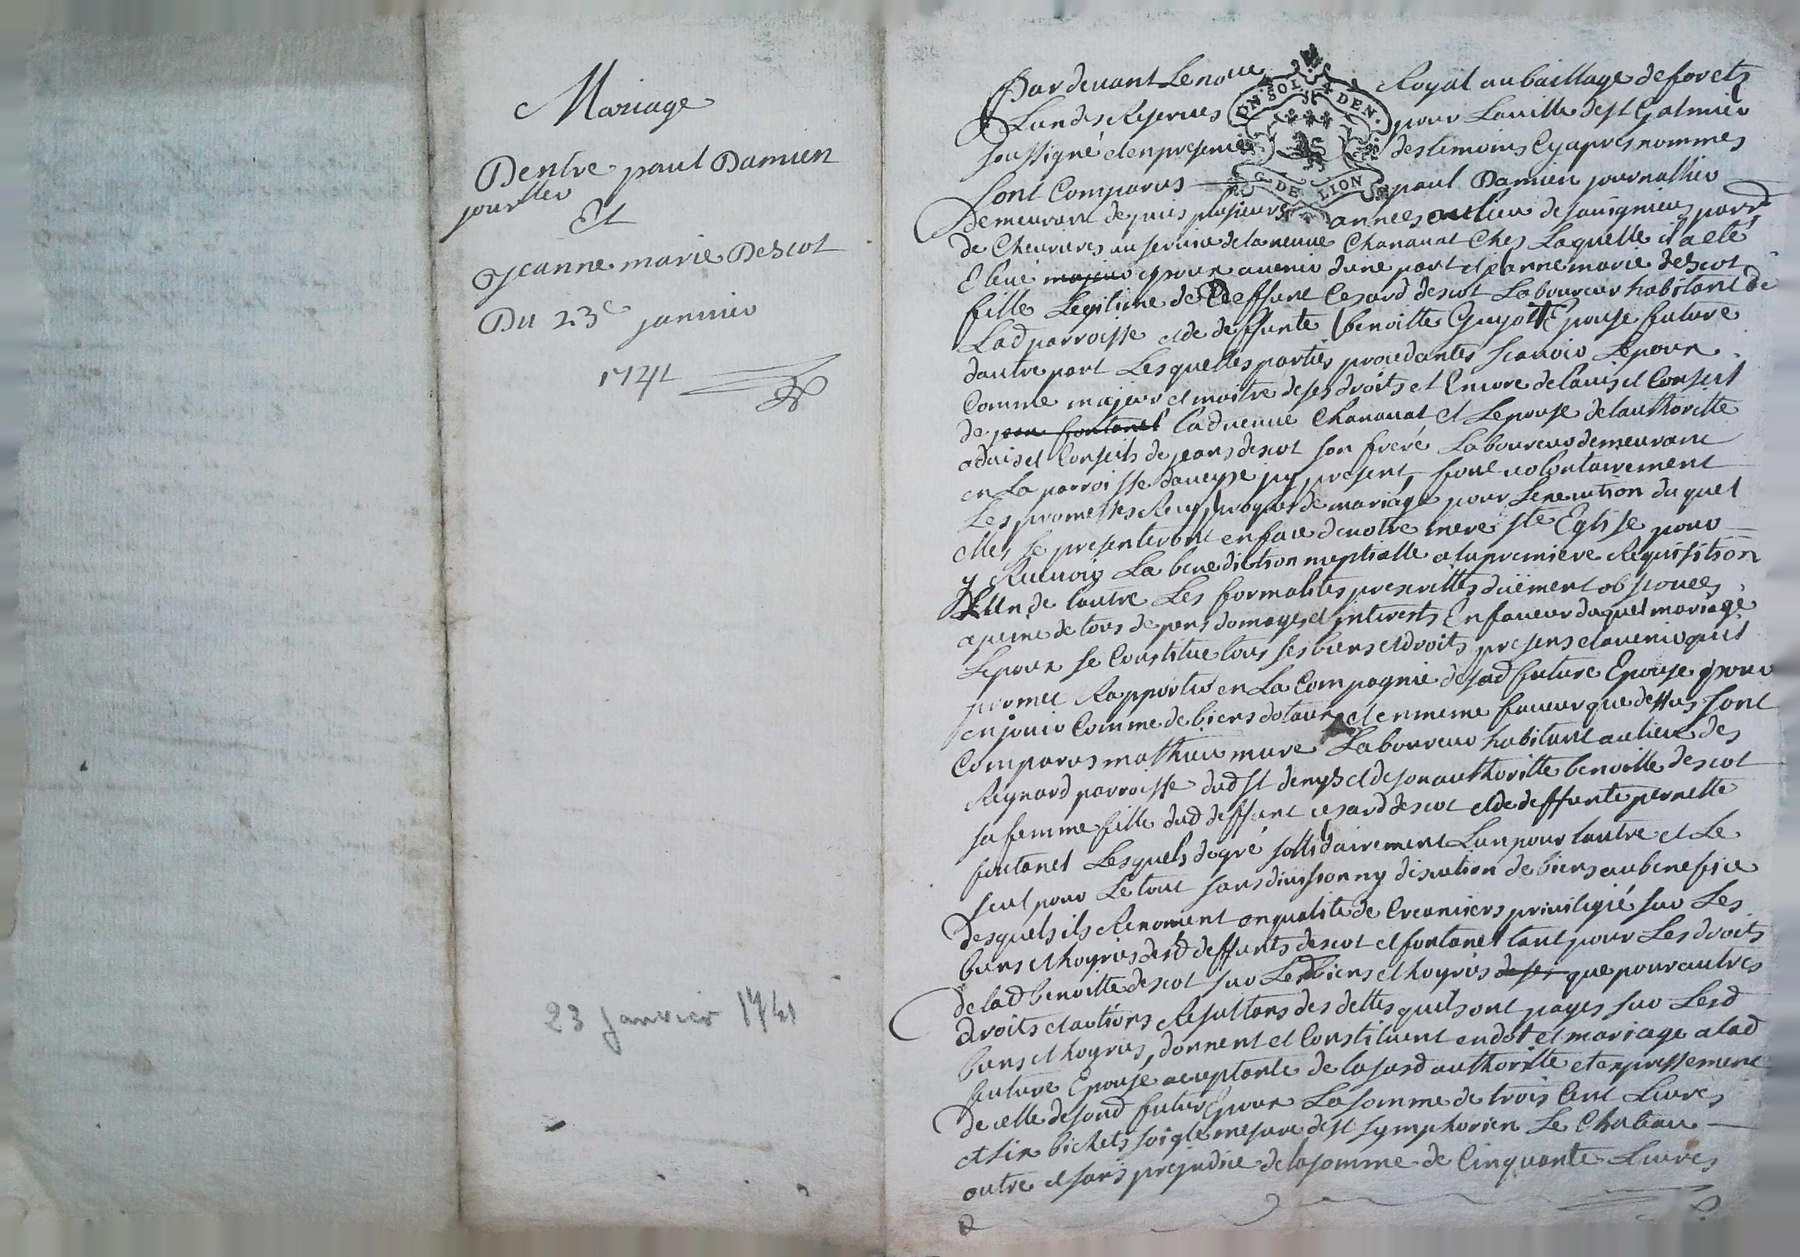 Mariage
Dentre paul Damien
jour^lier
Et
Jeanne marie Descot
Du 23e janvier
1741
23 janvier 1741
UN SOL. 4 DEN.
G. DE LION
Pardevant Le no^re Royal au baillage de forets
Lun des Reserves pour La ville de st Galmier
soussigné et en presence des temoins Cy apres nommes
sont Comparus paul Damien journallier
Demeurant depuis plusieurs années au lieu de parr
de Chevrieres au service de la veuve Chanavat Ches Laquelle il a eté
Elevé majeur Epoux avenir dune part et jeanne marie descot
fille Legitime de deffunt Cesard descot Laboureur habitant de
Lad parroisse et de deffunte benoitte Guyot Epouse future
dautre part Lesquelles parties procedantes scavoir Lepoux
Comme majeur et maitre de ses droits et Encore de lavis et Conseil
de jean fontanel lad veuve Chanavat et Lepouse de lauthoritte
advis et Conseils de jean descot son frere Laboureur demeurant
en La parroisse daveyse icy present, font volontairement
Les promesses Reciproques de mariage pour Lexecution duquel
elles se presenteront en face de notre mere ste Eglise pour
y Recevoir La benediction nuptialle a la premiere Requisition
de Lun de lautre Les formalités prescrittes düement observées
a peine de tous depens domages et interests En faveur duquel mariage
Lepoux se Constitue tous ses biens et droits presens et avenir quil
promet Rapporter en La Compagnie de sad future Epouse pour
en jouir Comme de biens dotaux et en meme faveur que dessus sont
Comparus mathieu mure Laboureur habitant au lieu des
Reynard parroisse dud st denys et de son authoritte benoitte descot
sa femme fille dud deffunt cesard descot et de deffunte pernette
fontanel Lesquels de gré sollidairement Lun pour lautre et Le
seul pour Le tout sans division ny discution de biens au benefice
desquels ils Renoncent en qualité de Creanciers priviligié sur Les
biens et hoyries desd deffunts descot et fontanel tant pour Les droits
de lad benoitte descot sur Lesd biens et hoyries de ses que pour autres
droits et actions Resultans des dettes quils ont payes sur Lesd
biens et hoyries, donnent et Constituent en dot et mariage a lad
future Epouse acceptante de lasusd authoritte et expressement
de celle de sond futur Epoux La somme de trois Cent Livres
et six bichets soigle mesure de st symphorien Le Chateau
outre et sans prejudice de la somme de Cinquante Livres